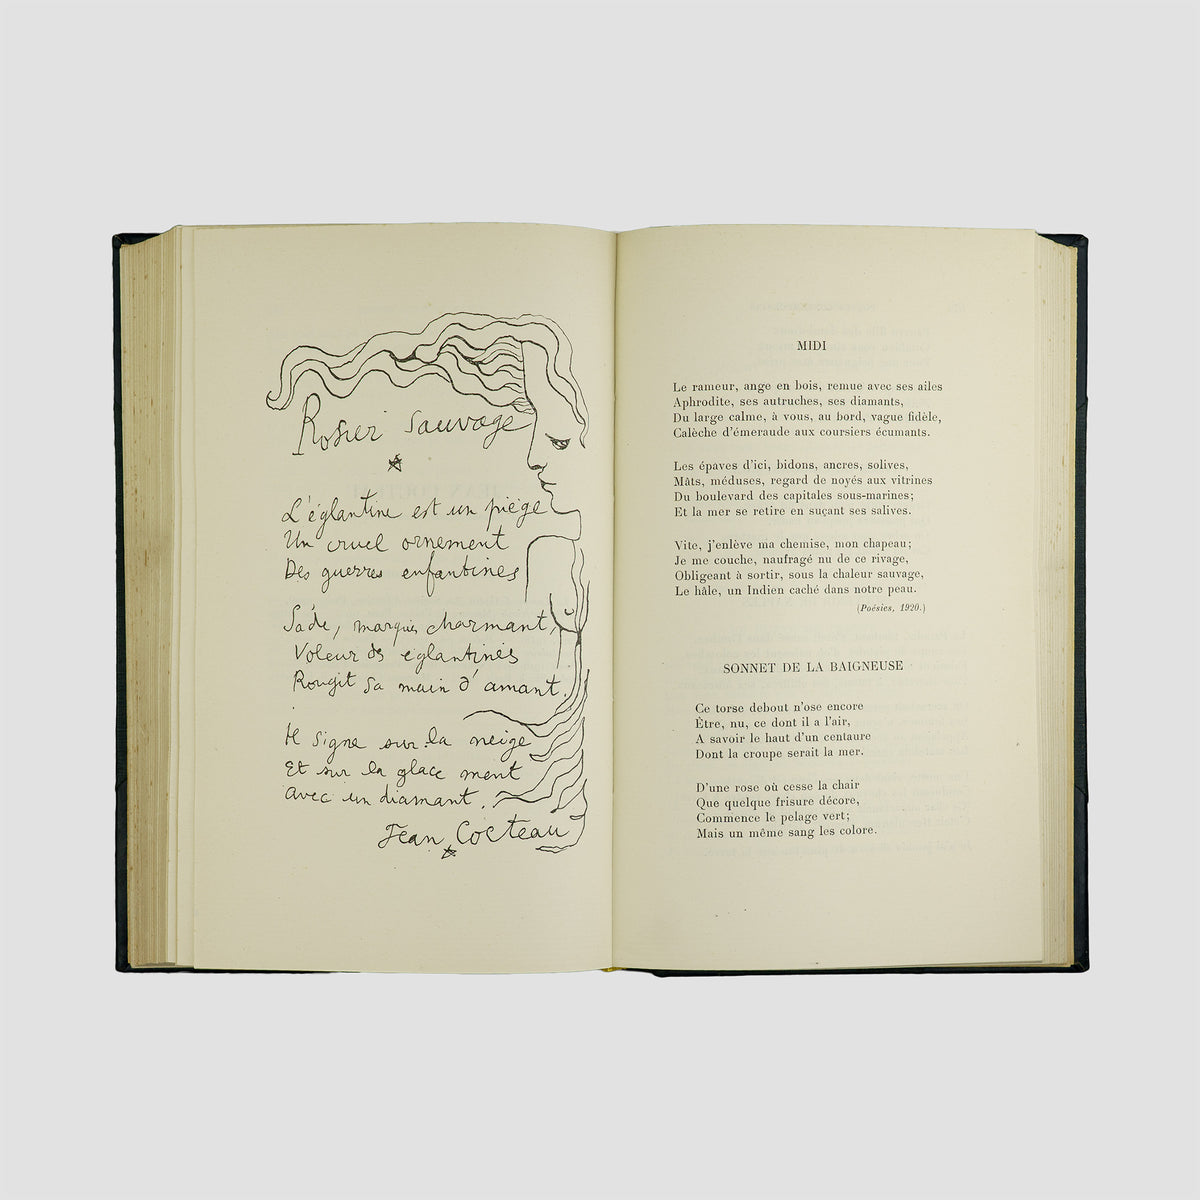 Rosier sauvage
L'églantine est un piège
Un cruel ornement
Des guerres enfantines
Sade, marquis charmant,
Voleur des églantines
Rougit sa main d'amant.
Il signe sur la neige
Et sur la glace ment
avec un diamant.
Jean Cocteau
MIDI
Le rameur, ange en bois, remue avec ses ailes
Aphrodite, ses autruches, ses diamants,
Du large calme, à vous, au bord, vague fidèle,
Calèche d'émeraude aux coursiers écumants.
Les épaves d'ici, bidons, ancres, solives,
Mâts, méduses, regard de noyés aux vitrines
Du boulevard des capitales sous-marines;
Et la mer se retire en suçant ses salives.
Vite, j'enlève ma chemise, mon chapeau;
Je me couche, naufragé nu de ce rivage,
Obligeant à sortir, sous la chaleur sauvage,
Le hâle, un Indien caché dans notre peau.
(Poésies, 1920.)
SONNET DE LA BAIGNEUSE
Ce torse debout n'ose encore
Être, nu, ce dont il a l'air,
A savoir le haut d'un centaure
Dont la croupe serait la mer.
D'une rose où cesse la chair
Que quelque frisure décore,
Commence le pelage vert;
Mais un même sang les colore.